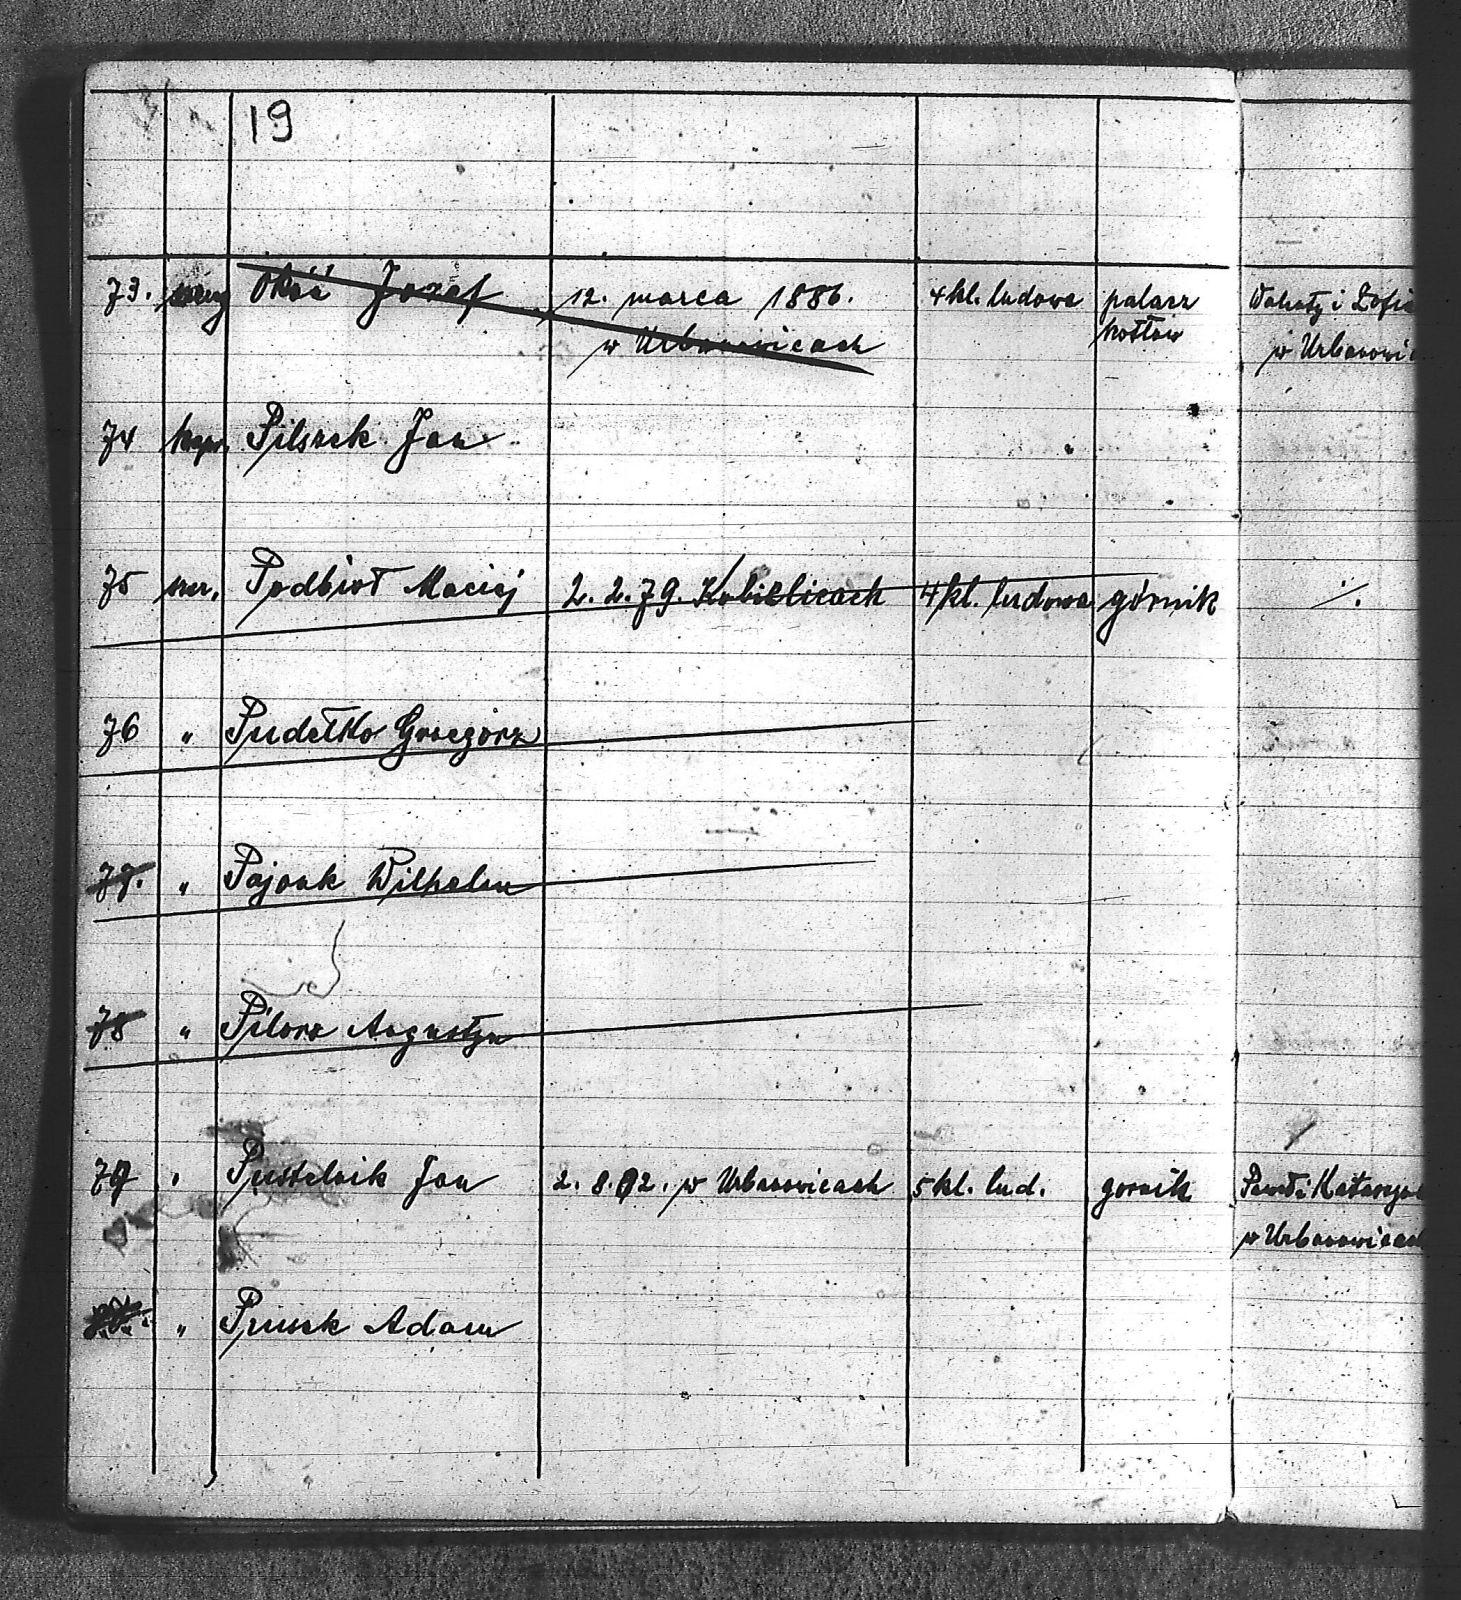 19
73. Józef 12. marca 1886. 4 kl. ludowa palacz i Zofia
w Urbanowicach kotłów w Urbanowic
74 kapr. Pilszek Jan
75 szer. Podbioł Maciej 2. 2. 79. Kobielicach 4 kl. ludowa górnik ./.
76 „ Pudełko Grzegorz
77. „ Pajonk Wilhelm
78 „ Pilorz Augustyn
79 „ Pustelnik Jan 2. 8. 92. w Urbanowicach 5 kl. lud. gornik Paweł i Katarzyna
w Urbanowicach
80. „ Adam